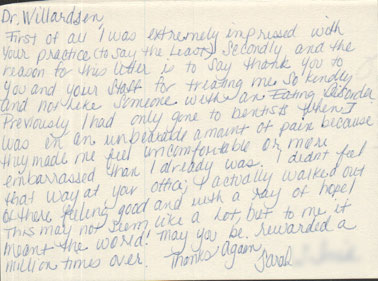 Dr. Willardsen,
First of all I was extremely impressed with
your practice (to say the least) Secondly, and the
reason for this letter is to say thank you to
you and your staff for treating me so kindly
and not like someone with an Eating Disorder
Previously I had only gone to dentists when I
was in an unbearable amount of pain because
they made me feel uncomfortable or more
embarrassed than I already was. I didn't feel
that way at your office, I actually walked out
of there feeling good and with a ray of hope!
This may not seem like a lot, but to me it
meant the world! May you be rewarded a
million times over. Thanks Again,
Sarah